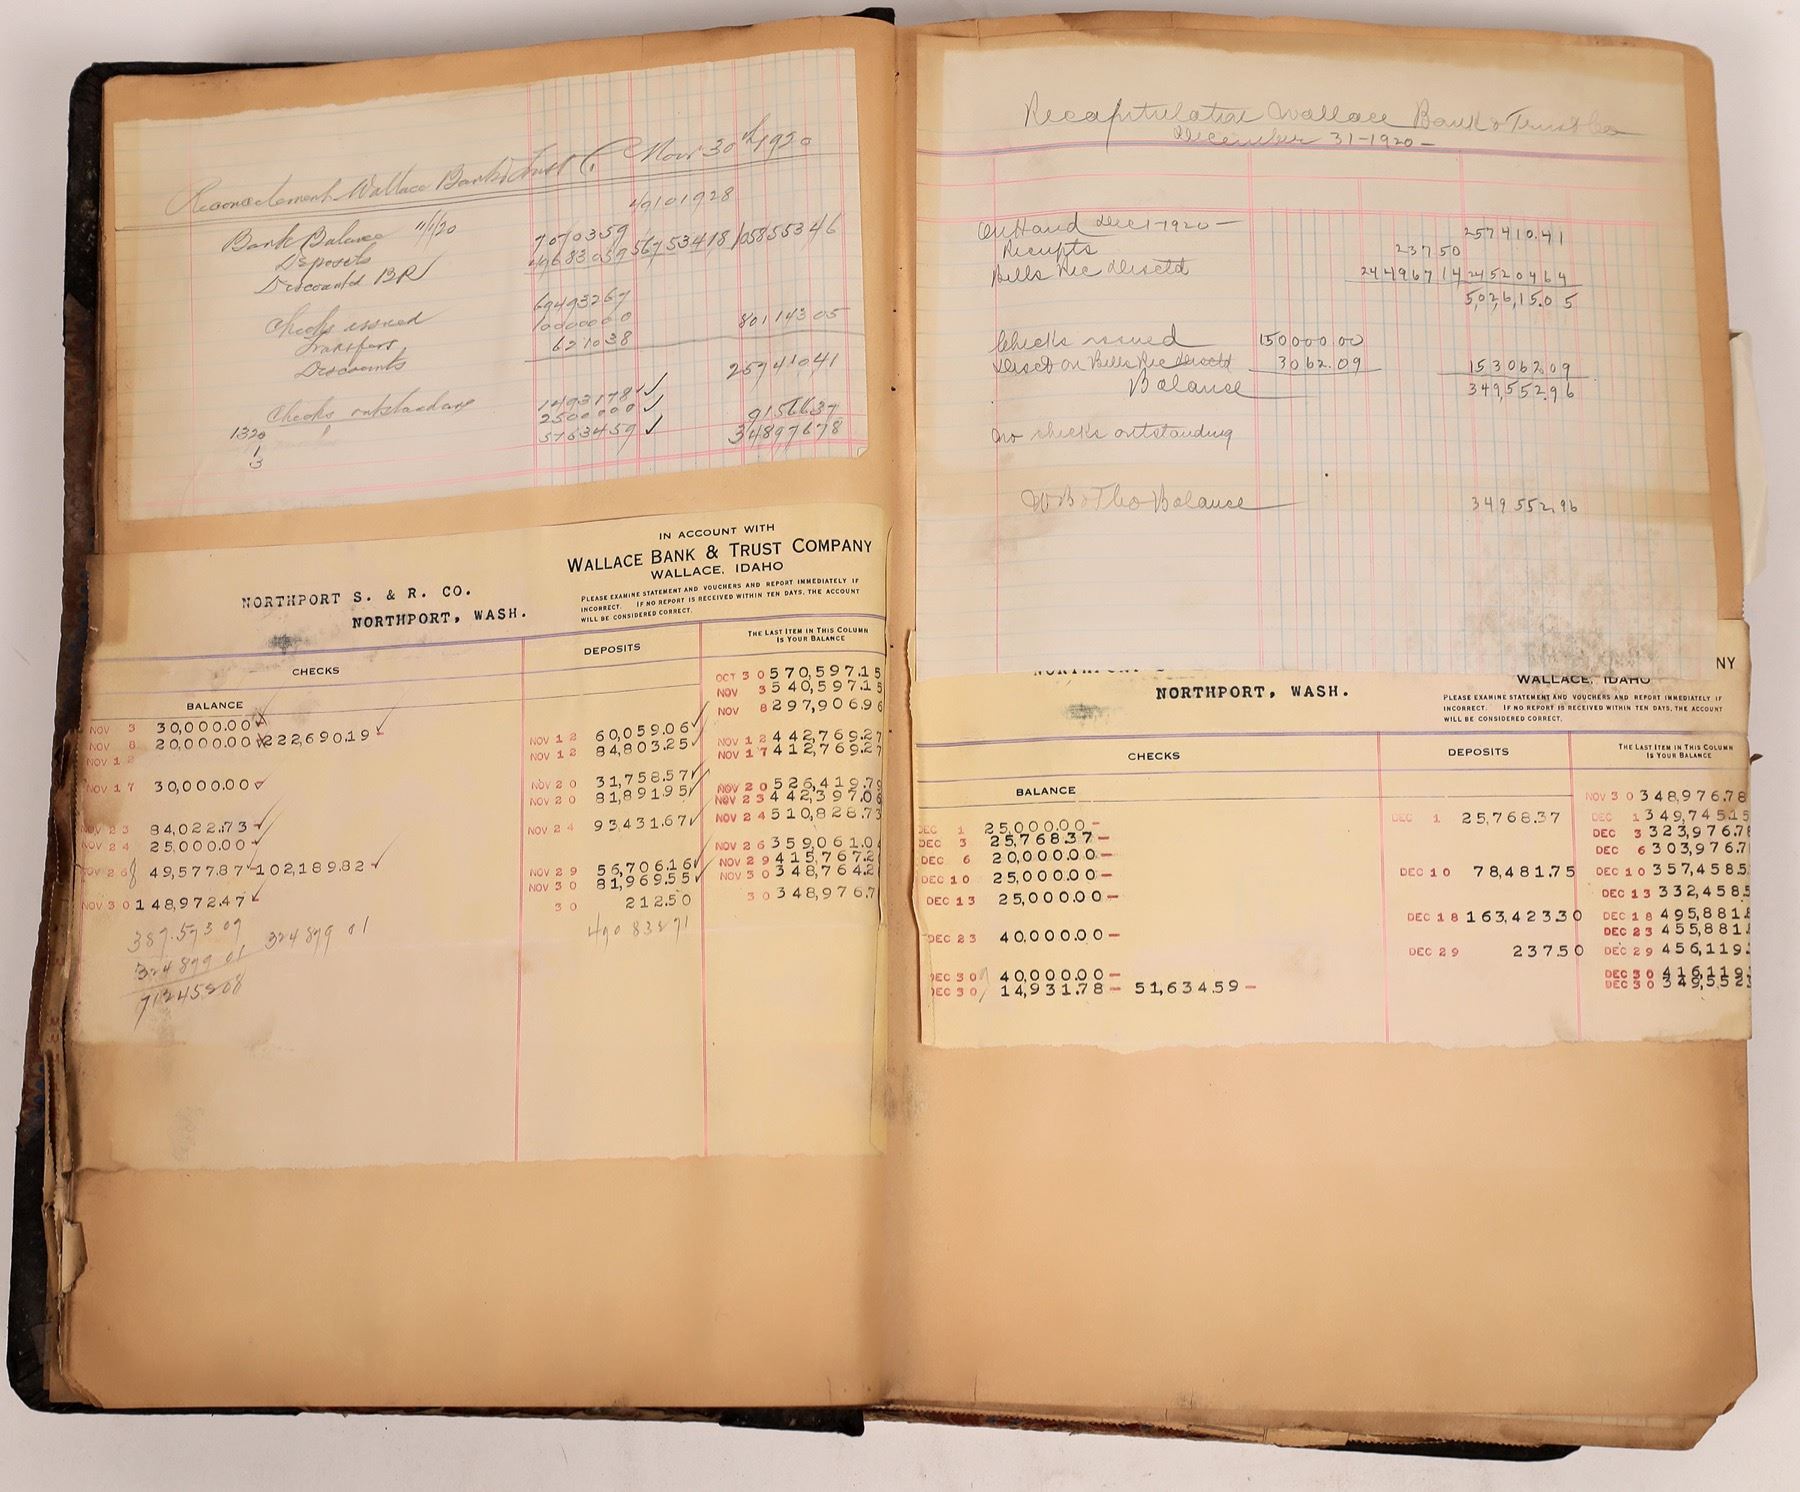 Reconcilement Wallace Bank & Trust Co Nov 30th 1920
Bank Balance 11/1/20 49101928
Deposits 7070359
Discounted BR 49683059 56753418 105855346
Checks issued 69493267
Transfers 1000000
Discounts 621038 80114305
25741041
Checks outstanding
1320 1493178 ✓
1 2500000 ✓ 9156637
3 5763459 ✓ 34897678
IN ACCOUNT WITH
WALLACE BANK & TRUST COMPANY
WALLACE, IDAHO
NORTHPORT S. & R. CO.
NORTHPORT, WASH.
PLEASE EXAMINE STATEMENT AND VOUCHERS AND REPORT IMMEDIATELY IF
INCORRECT. IF NO REPORT IS RECEIVED WITHIN TEN DAYS, THE ACCOUNT
WILL BE CONSIDERED CORRECT.
CHECKS DEPOSITS THE LAST ITEM IN THIS COLUMN
IS YOUR BALANCE
BALANCE OCT 30 570,597.15
NOV 3 30,000.00 NOV 3 540,597.15
NOV 8 20,000.00 222,690.19 NOV 8 297,906.96
NOV 12 NOV 12 60,059.06
NOV 12 84,803.25 NOV 12 442,769.27
NOV 17 30,000.00 NOV 17 412,769.27
NOV 20 31,758.57
NOV 20 81,891.95 NOV 20 526,419.79
NOV 23 84,022.73 NOV 23 442,397.06
NOV 24 25,000.00 NOV 24 93,431.67 NOV 24 510,828.73
NOV 26 49,577.87 102,189.82 NOV 26 359,061.04
NOV 29 56,706.16 NOV 29 415,767.2
NOV 30 148,972.47 NOV 30 81,969.55 NOV 30 348,764.2
30 212.50 30 348,976.7
387.573 09 324899 01 490 83271
324899 01
71245208
Recapitulation Wallace Bank & Trust Co
December 31-1920-
On Hand Dec 1-1920- 257410.41
Receipts 23750
Bills Rec Disctd 24496714 24520464
5,026,15.05
Checks issued 150000.00
Disct on Bills Rec Disctd 3062.09 15306209
Balance 349,552.96
no checks outstanding
W B & T Co Balance 349552.96
NY
WALLACE, IDAHO
NORTHPORT, WASH.
PLEASE EXAMINE STATEMENT AND VOUCHERS AND REPORT IMMEDIATELY IF
INCORRECT. IF NO REPORT IS RECEIVED WITHIN TEN DAYS, THE ACCOUNT
WILL BE CONSIDERED CORRECT.
CHECKS DEPOSITS THE LAST ITEM IN THIS COLUMN
IS YOUR BALANCE
BALANCE NOV 30 348,976.78
DEC 1 25,000.00- DEC 1 25,768.37 DEC 1 349,745.15
DEC 3 25,768.37- DEC 3 323,976.78
DEC 6 20,000.00- DEC 6 303,976.7
DEC 10 25,000.00- DEC 10 78,481.75 DEC 10 357,458.5
DEC 13 25,000.00- DEC 13 332,458.5
DEC 18 163,423.30 DEC 18 495,881.8
DEC 23 40,000.00- DEC 23 455,881.
DEC 29 237.50 DEC 29 456,119.
DEC 30 40,000.00- DEC 30 416,119.
DEC 30 14,931.78- 51,634.59- DEC 30 349,552